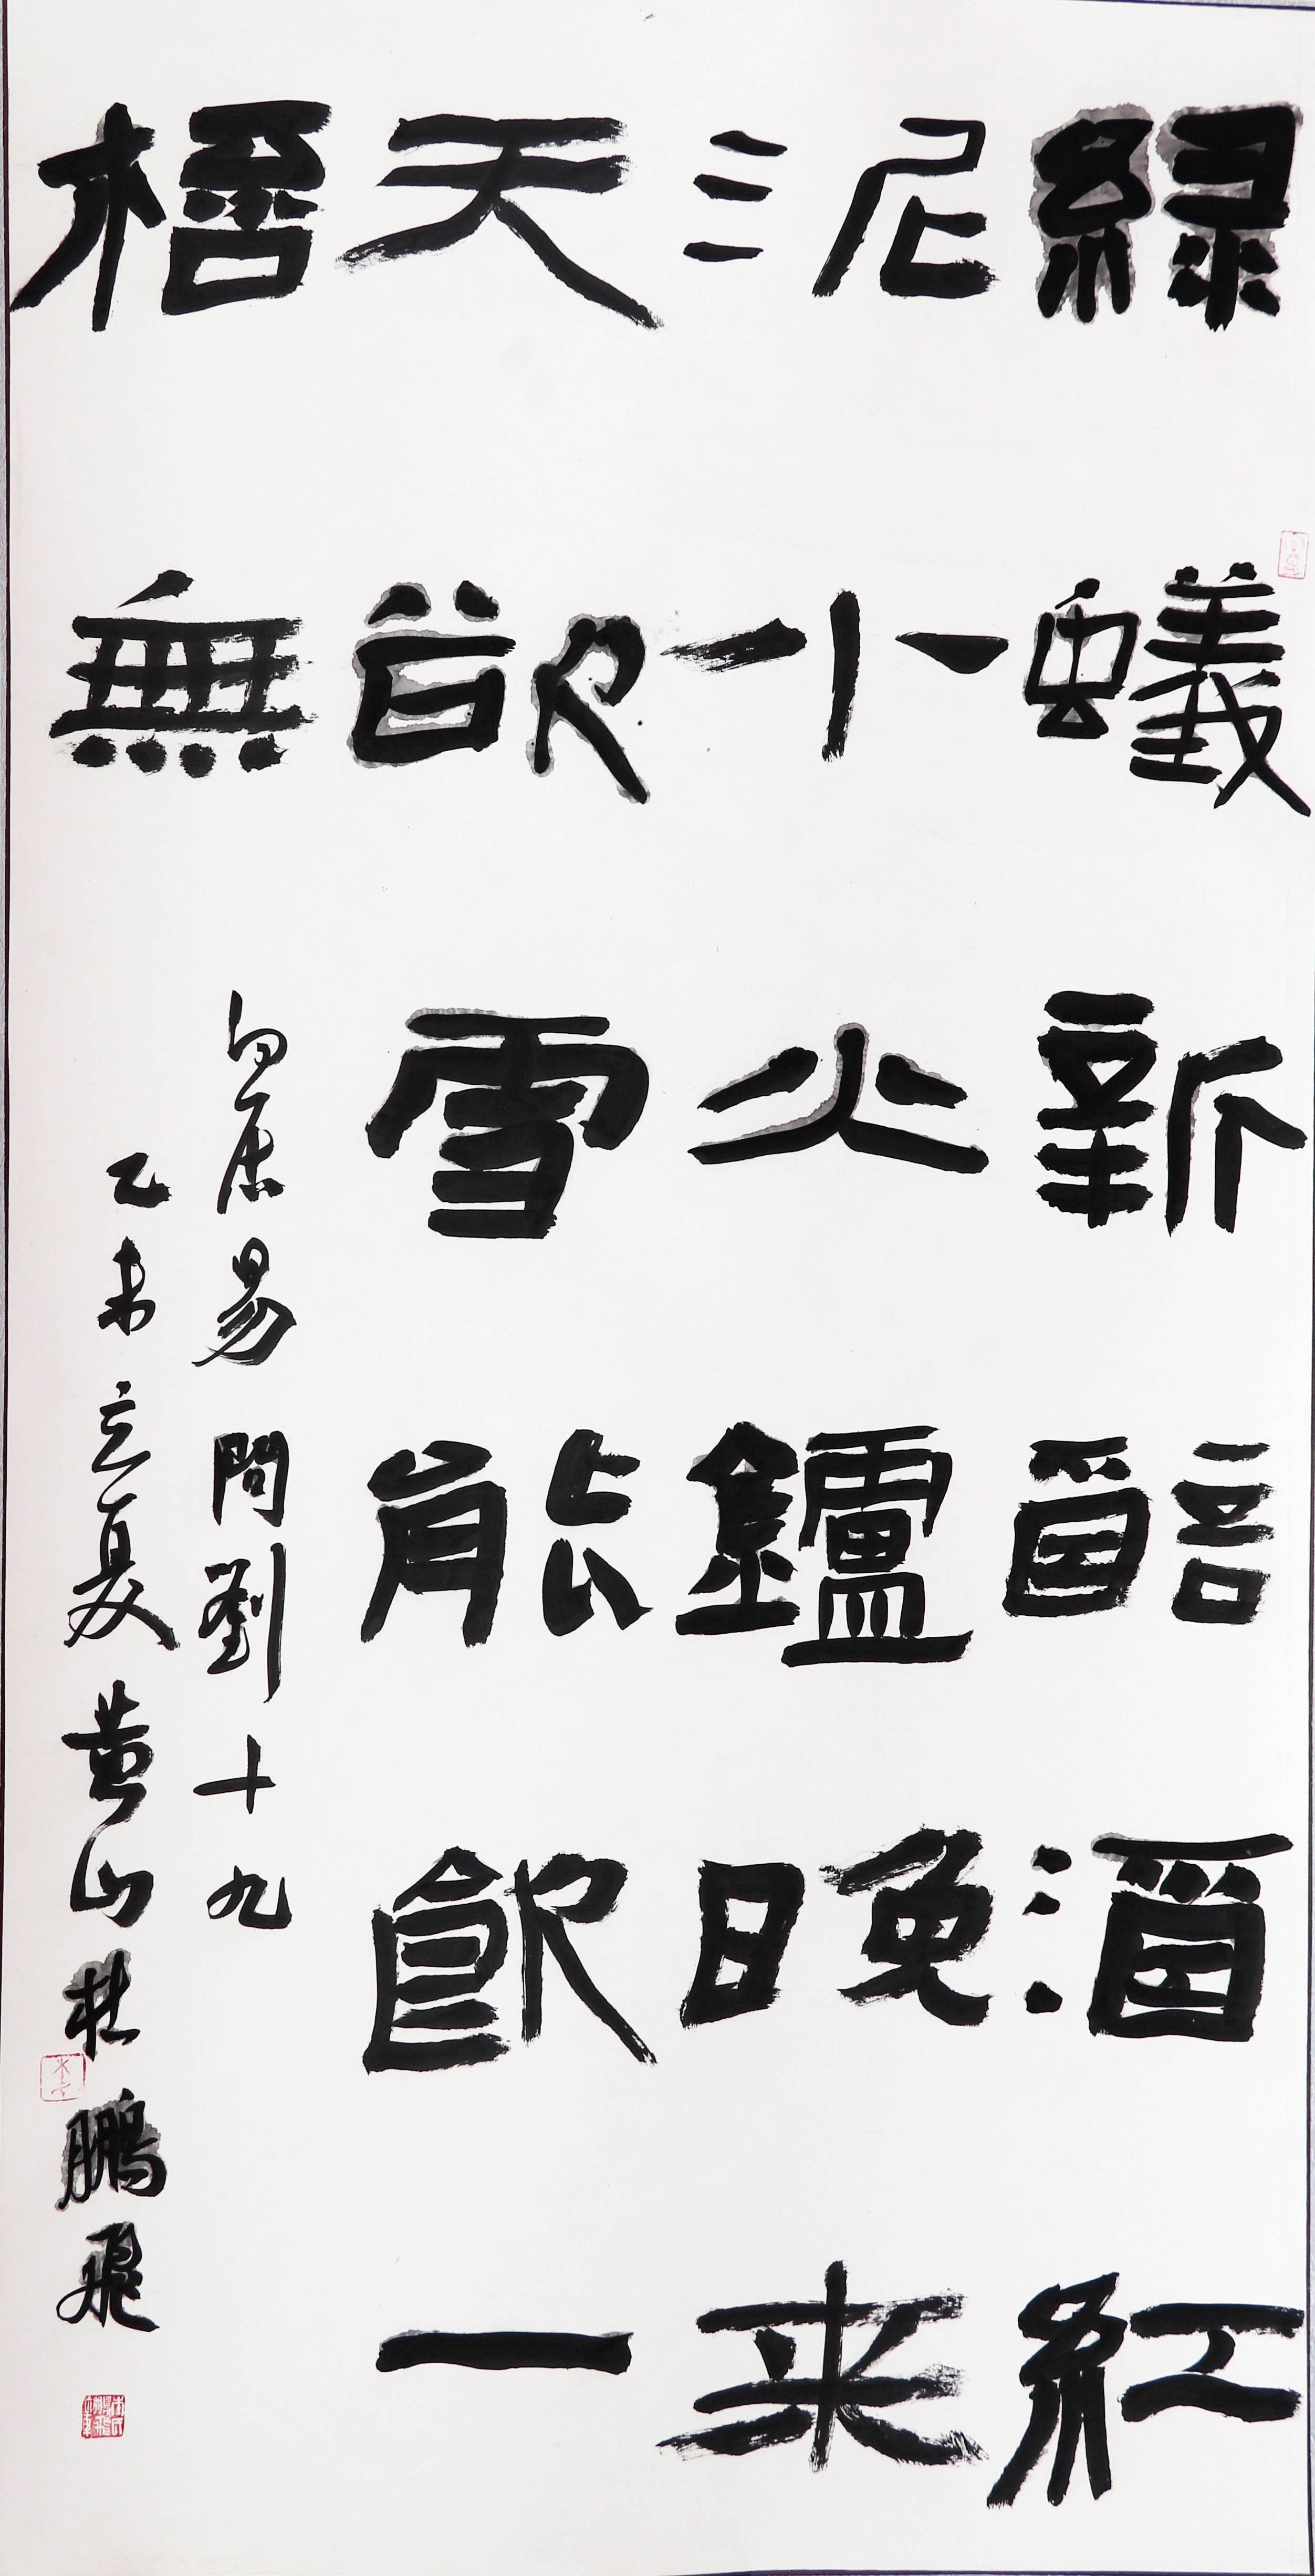 緑蟻新醅酒紅
泥小火鑪晚来
天欲雪能飲一
桮無
白居易問劉十九
乙未立夏黄山杜鵬飛